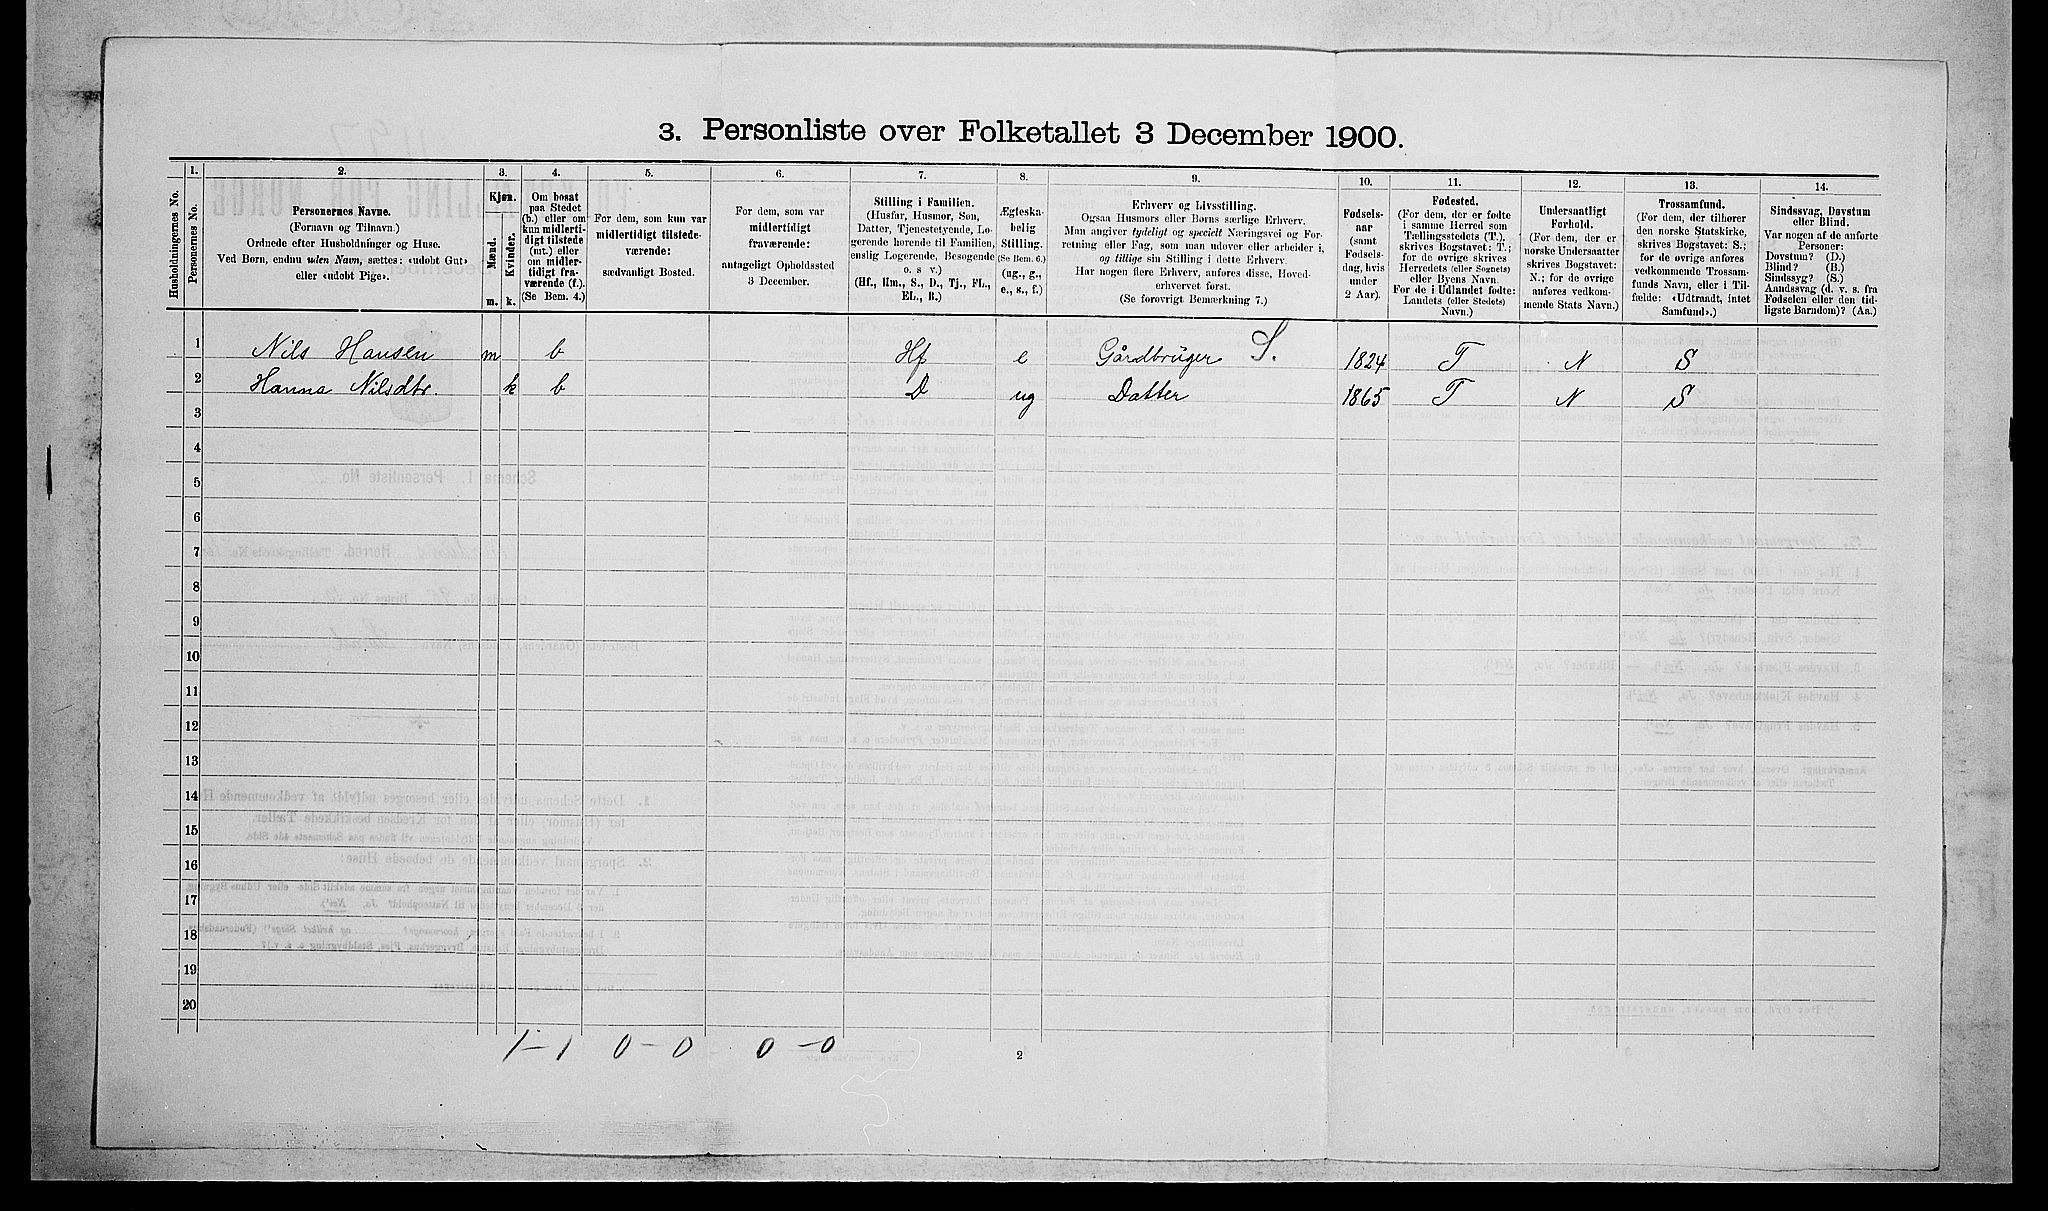 3. Personliste over Folketallet 3 December 1900.
Husholdningernes No.
1.
Personernes No.
2.
Personernes Navne.
(Fornavn og Tilnavn.)
Ordnede efter Husholdninger og Huse.
Ved Børn, endnu uden Navn, sættes: «udøbt Gut»
eller «udøbt Pige».
3.
Kjøn.
Mænd.
Kvinder.
m.
k.
4.
Om bosat
paa Stedet
(b.) eller om
kun midlerti-
digt tilstede
(mt.) eller
om midler-
tidigt fra-
værende (f.).
(Se Bem. 4.)
5.
For dem, som kun var
midlertidigt tilstede-
værende:
sædvanligt Bosted.
6.
For dem, som var
midlertidigt
fraværende:
antageligt Opholdssted
3 December.
7.
Stilling i Familien.
(Husfar, Husmor, Søn,
Datter, Tjenestetyende, Lo-
gerende hørende til Familien,
enslig Logerende, Besøgende
o. s. v.)
(Hf., Hm., S., D., Tj., FL.,
EL., B.)
8.
Ægteska-
belig
Stilling.
(Se Bem. 6.)
(ug., g.,
e., s., f.)
9.
Erhverv og Livsstilling.
Ogsaa Husmors eller Børns særlige Erhverv.
Man angiver tydeligt og specielt Næringsvei og For-
retning eller Fag, som man udøver eller arbeider i,
og tillige sin Stilling i dette Erhverv.
Har nogen flere Erhverv, anføres disse, Hoved-
erhvervet først.
(Se forøvrigt Bemærkning 7.)
10.
Fødsels-
aar
(samt
Fødsels-
dag, hvis
under
2 Aar).
11.
Fødested.
(For dem, der er fødte
i samme Herred som
Tællingsstedets (T.),
skrives Bogstavet: T.;
for de øvrige skrives
Herredets (eller Sognets)
eller Byens Navn.
For de i Udlandet fødte:
Landets (eller Stedets)
Navn.)
12.
Undersaatligt
Forhold.
(For dem, der er
norske Undersaatter
skrives Bogstavet:
N.; for de øvrige
anføres vedkom-
mende Stats Navn.)
13.
Trossamfund.
(For dem, der tilhører
den norske Statskirke,
skrives Bogstavet: S.;
for de øvrige anføres
vedkommende Trossam-
funds Navn, eller i Til-
fælde: «Udtraadt, intet
Samfund».)
14.
Sindssvag, Døvstum
eller Blind.
Var nogen af de anførte
Personer:
Døvstum? (D.)
Blind? (B.)
Sindssyg? (S.)
Aandssvag (d. v. s. fra
Fødselen eller den tid-
ligste Barndom)? (Aa.)
1 Nils Hansen m b Hf e Gårdbruger S. 1824 T N S
2 Hanna Nilsdtr. k b D ug Datter 1865 T N S
3
4
5
6
7
8
9
10
11
12
13
14
15
16
17
18
19
20
1–1 0–0 0–0
2